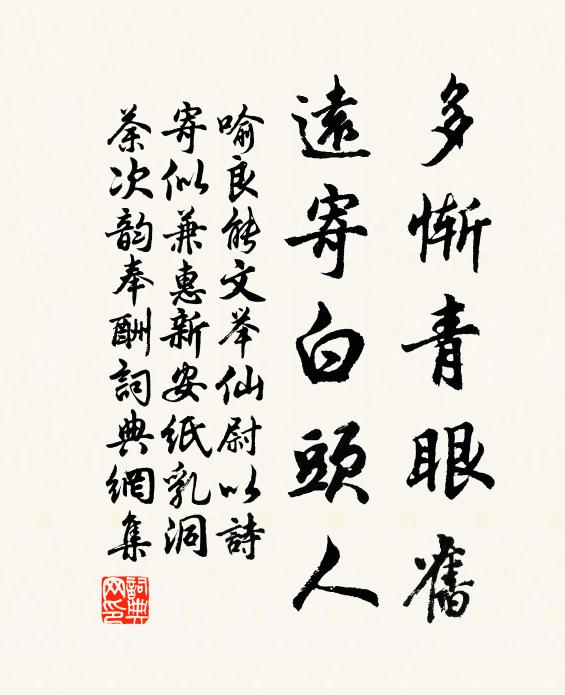 多慚青眼舊
遠寄白頭人
喻良能文举仙尉以詩
寄似兼惠新安纸乳洞
茶次韵奉酬詞典網集
詞典網印